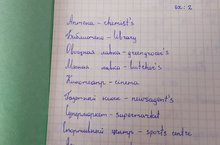 ex: 2
Аптека - chemist's
Библиотека - library
Овощная лавка - greengrocer's
Мясная лавка - butcher's
Кинотеатр - cinema
Газетный киоск - newsagent's
Супермаркет - supermarket
Спортивный центр - sports centre